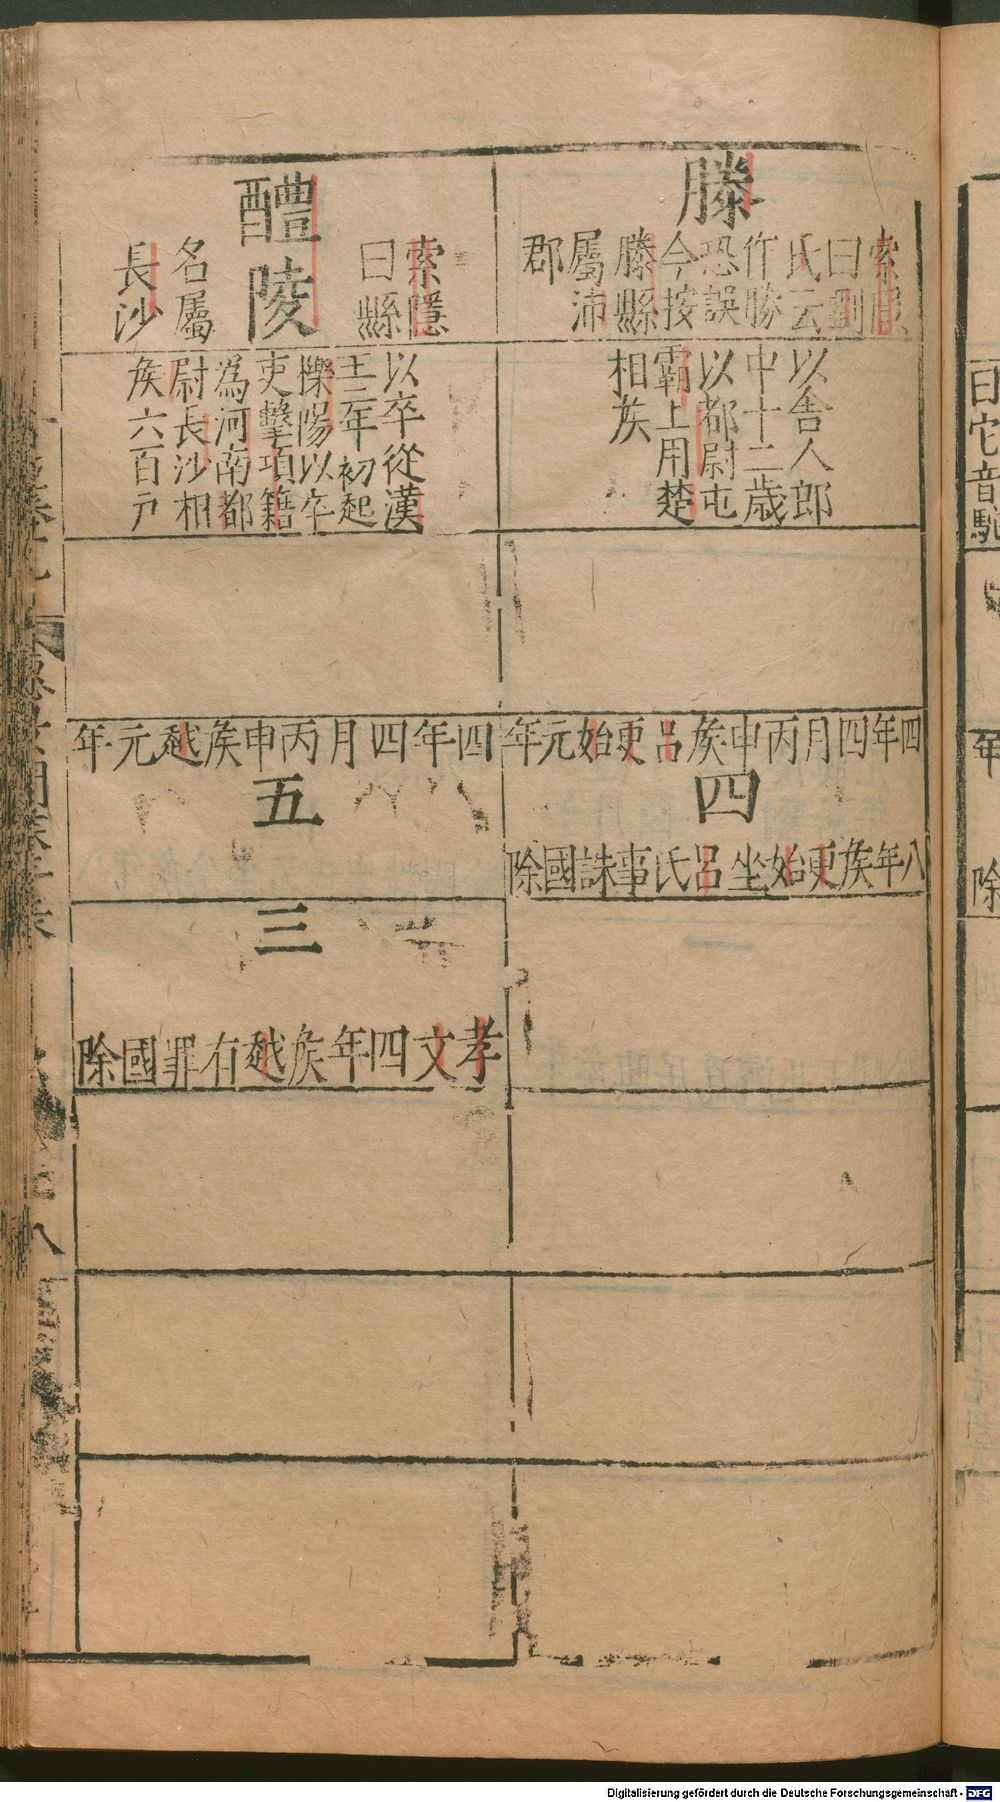 滕
索隱
曰劉
氏云
作勝
恐誤
今按
滕縣
屬沛
郡
以舍人郎
中十二歲
以都尉屯
霸上用楚
相矦
四年四月丙申矦呂更始元年
四
八年矦更始坐呂氏事誅國除
醴陵
索隱
曰縣
名屬
長沙
以卒從漢
王二年初起
櫟陽以卒
吏擊項籍
為河南都
尉長沙相
矦六百戸
四年四月丙申矦越元年
五
三
孝文四年矦越有罪國除
曰它音駝
年
除
Digitalisierung gefördert durch die Deutsche Forschungsgemeinschaft - DFG